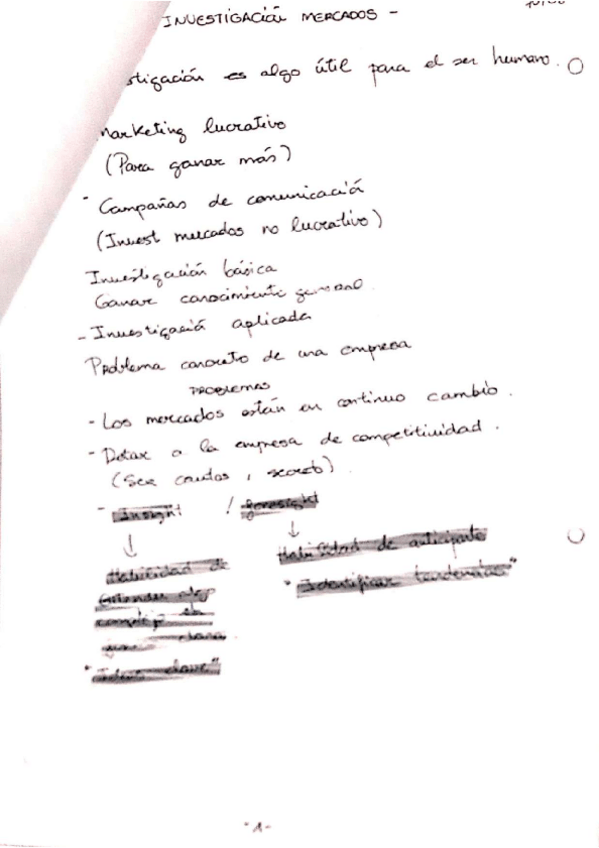 INVESTIGACIÓN MERCADOS -
stigación es algo útil para el ser humano.
Marketing lucrativo
(Para ganar más)
- Campañas de comunicación
(Invest mercados no lucrativo)
Investigación básica
Ganar conocimiento general.
- Investigació aplicada
Problema concreto de una empresa
PROBLEMAS
- Los mercados están en continuo cambio.
- Dotar a la empresa de competitividad.
(Ser cautos, secreto)
- Insight / foresight
Habilidad de
entender algo
Habilidad de anticiparte
"Identificar tendencias"
clara
clave"
-1-